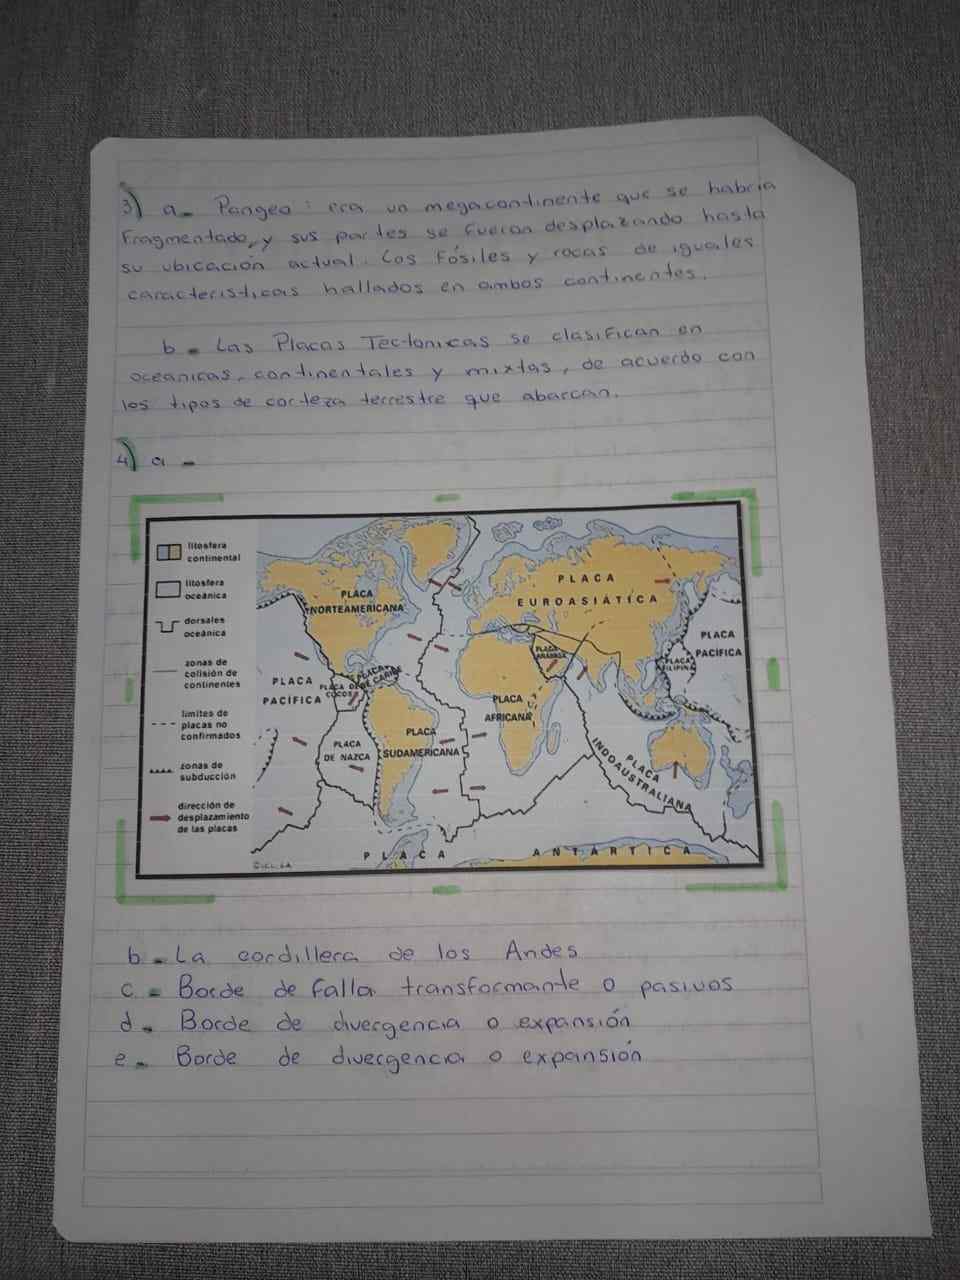 3) a- Pangea: era un megacontinente que se habría
fragmentado, y sus partes se fueron desplazando hasta
su ubicación actual. Los Fósiles y rocas de iguales
caracteristicas hallados en ambos continentes.
b- Las Placas Tectonicas se clasifican en
oceanicas, continentales y mixtas, de acuerdo con
los tipos de corteza terrestre que abarcan.
4) a -
litosfera
continental
litosfera
oceánica
dorsales
oceánica
zonas de
colisión de
continentes
límites de
placas no
confirmados
zonas de
subducción
dirección de
desplazamiento
de las placas
PLACA
NORTEAMERICANA
PLACA
EUROASIÁTICA
PLACA
PACÍFICA
PLACA
ARÁBIGA
PLACA
FILIPINA
PLACA
PACÍFICA
PLACA
COCOS
PLACA
DE CARIBE
PLACA
AFRICANA
PLACA
DE NAZCA
PLACA
SUDAMERICANA
PLACA
INDOAUSTRALIANA
PLACA ANTÁRTICA
b- La cordillera de los Andes
c- Borde de falla transformante o pasivos
d- Borde de divergencia o expansión
e- Borde de divergencia o expansión